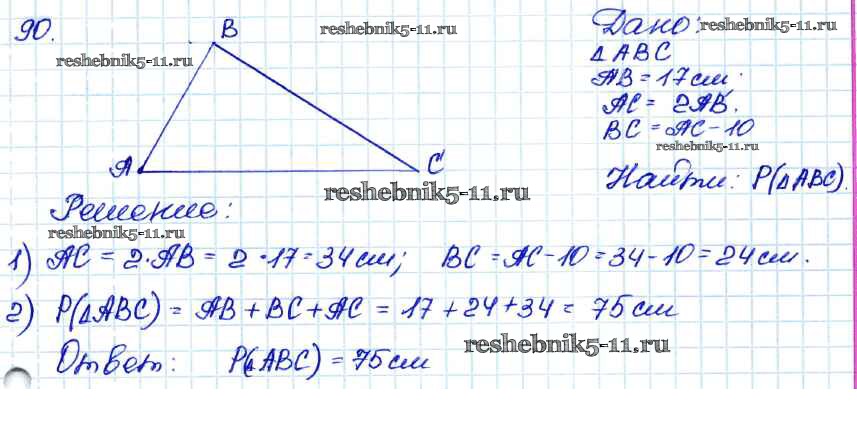 90.
B
A
C
reshebnik5-11.ru
reshebnik5-11.ru
Дано:
reshebnik5-11.ru
△ABC
AB = 17 см.
AC = 2AB.
BC = AC - 10
reshebnik5-11.ru
Найти: P(△ABC).
reshebnik5-11.ru
Решение:
reshebnik5-11.ru
1) AC = 2·AB = 2·17 = 34 см; BC = AC - 10 = 34 - 10 = 24 см.
2) P(△ABC) = AB + BC + AC = 17 + 24 + 34 = 75 см
reshebnik5-11.ru
Ответ: P(△ABC) = 75 см